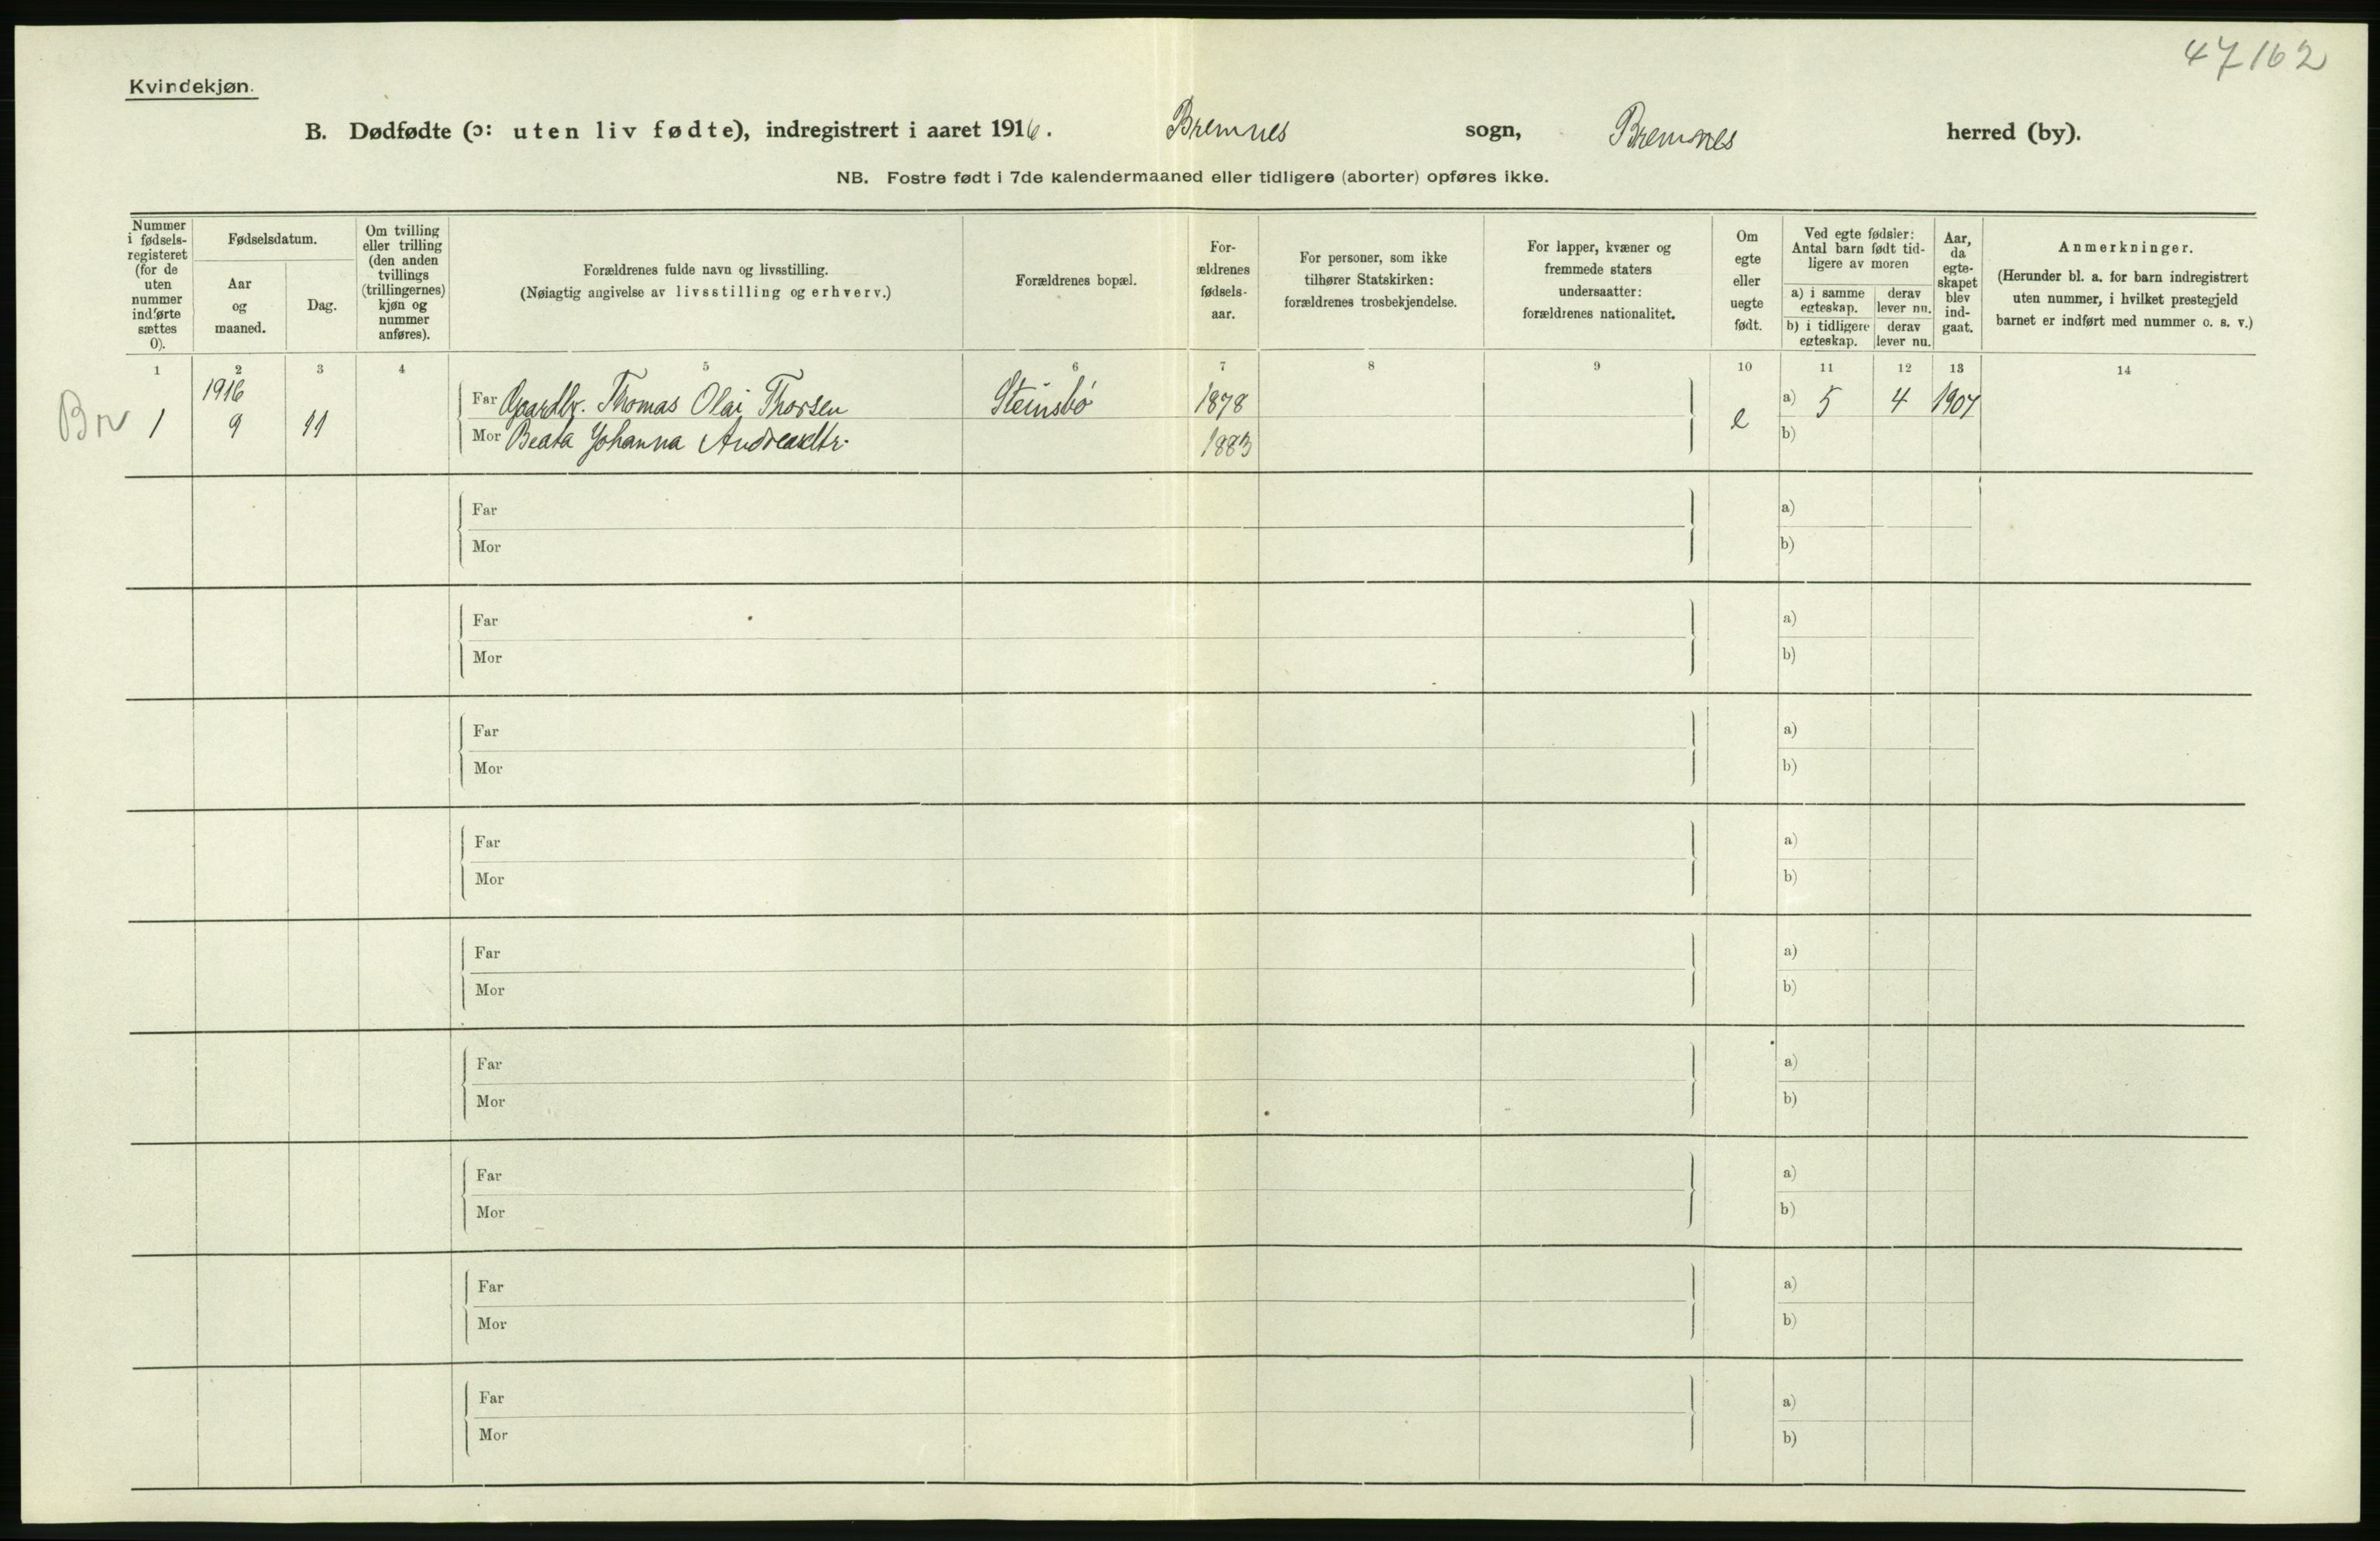 47162
Kvindekjøn.
B. Dødfødte (ɔ: uten liv fødte), indregistrert i aaret 1916. Bremnes sogn, Bremsnes herred (by).
NB. Fostre født i 7de kalendermaaned eller tidligere (aborter) opføres ikke.
Nummer i fødsels-registeret (for de uten nummer indførte sættes 0).
Fødselsdatum.
Aar og maaned.
Dag.
Om tvilling eller trilling (den anden tvillings (trillingernes) kjøn og nummer anføres).
Forældrenes fulde navn og livsstilling.
(Nøiagtig angivelse av livsstilling og erhverv.)
Forældrenes bopæl.
For-ældrenes fødsels-aar.
For personer, som ikke tilhører Statskirken: forældrenes trosbekjendelse.
For lapper, kvæner og fremmede staters undersaatter: forældrenes nationalitet.
Om egte eller uegte født.
Ved egte fødsler: Antal barn født tid-ligere av moren
a) i samme egteskap.
derav lever nu.
b) i tidligere egteskap.
derav lever nu.
Aar, da egte-skapet blev ind-gaat.
Anmerkninger.
(Herunder bl. a. for barn indregistrert uten nummer, i hvilket prestegjeld barnet er indført med nummer o. s. v.)
1 2 3 4 5 6 7 8 9 10 11 12 13 14
1916
Far Gaardbr. Thomas Olai Thorsen Steinsbø 1878 a) 5 4 1907
Br 1 9 11 e
Mor Beata Johanna Andreasdtr. 1883 b)
Far a)
Mor b)
Far a)
Mor b)
Far a)
Mor b)
Far a)
Mor b)
Far a)
Mor b)
Far a)
Mor b)
Far a)
Mor b)
Far a)
Mor b)
Far a)
Mor b)